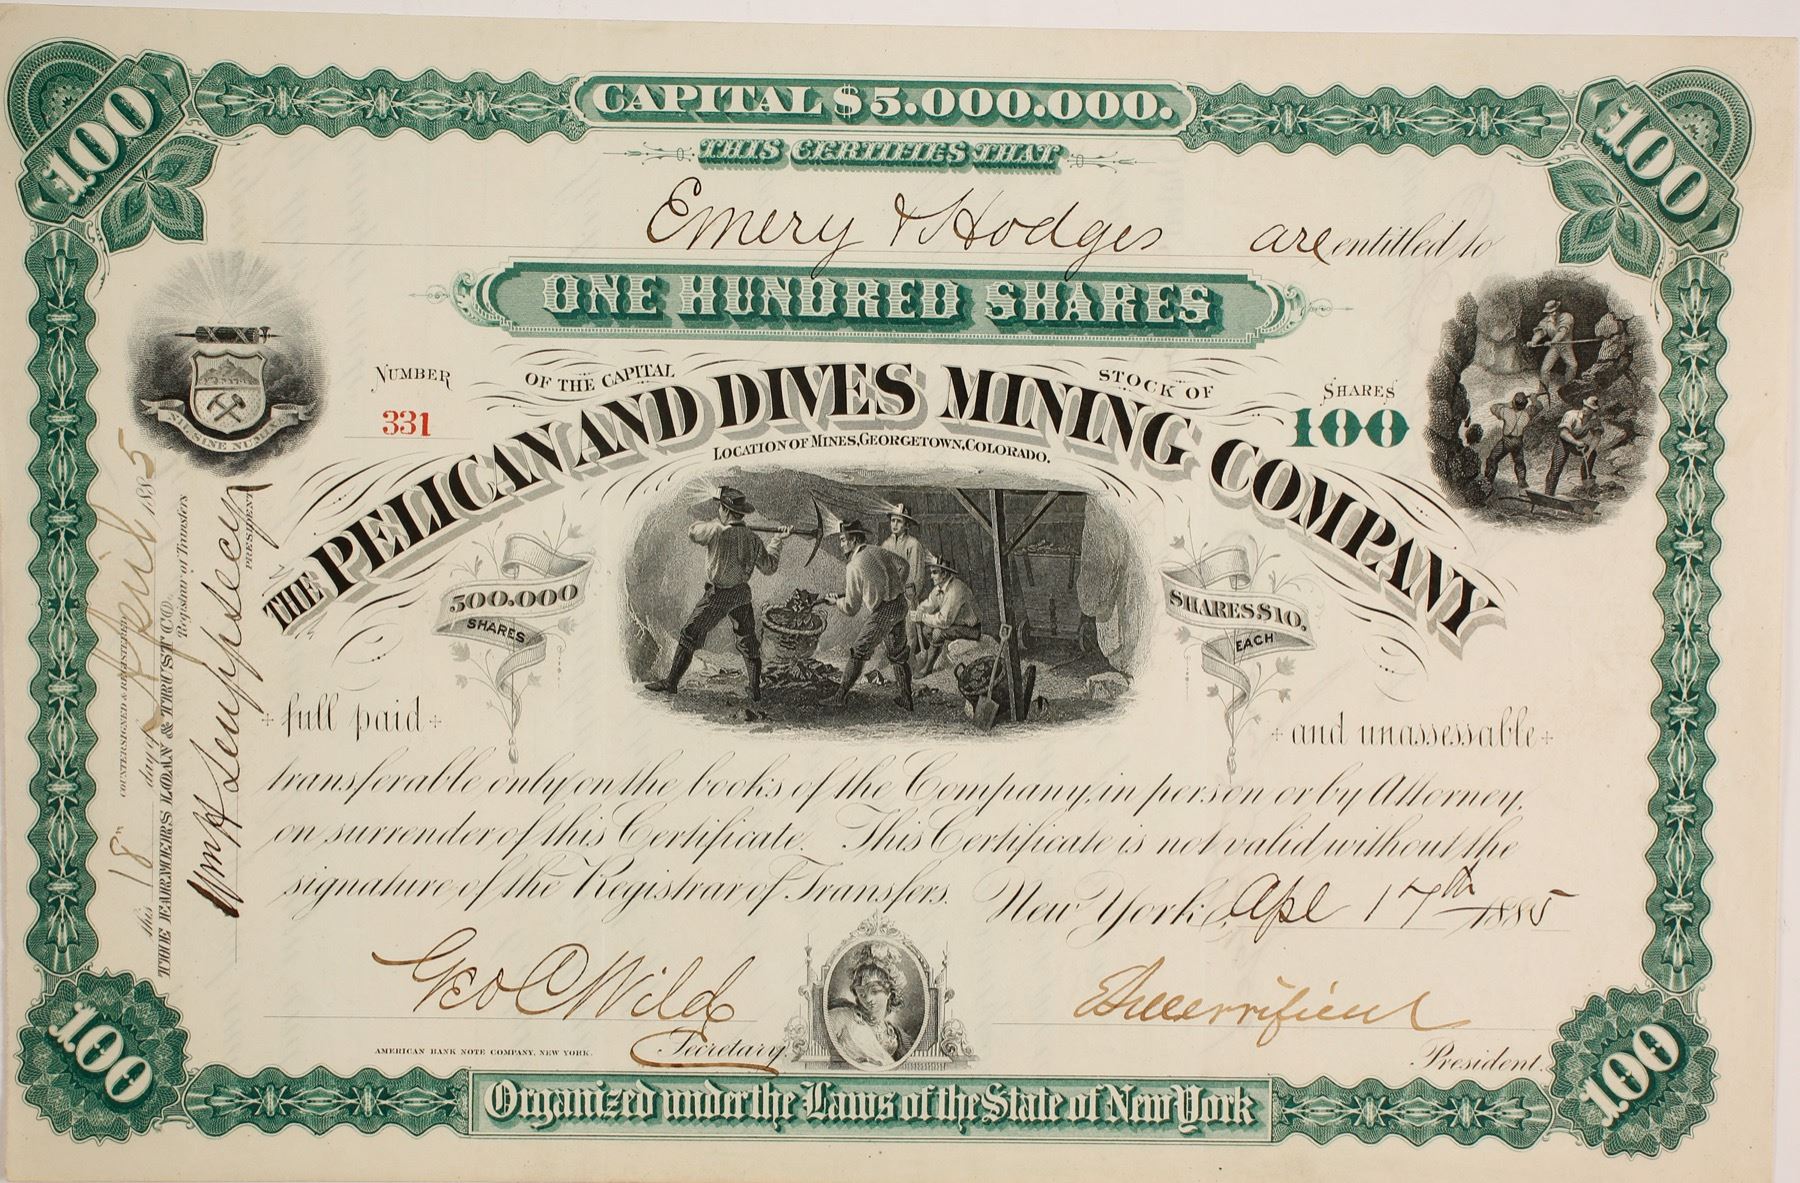 100
CAPITAL $5.000.000.
100
THIS CERTIFIES THAT
Emery & Hodges are entitled to
ONE HUNDRED SHARES
NIL SINE NUMINE
NUMBER
331
OF THE CAPITAL
STOCK OF
SHARES
100
THE PELICAN AND DIVES MINING COMPANY
LOCATION OF MINES, GEORGETOWN, COLORADO.
500.000
SHARES
SHARES $10.
EACH
full paid
and unassessable
transferable only on the books of the Company, in person or by Attorney,
on surrender of this Certificate. This Certificate is not valid without the
signature of the Registrar of Transfers. New York, Apl 17th 1885
Geo C Wild
Secretary.
President.
AMERICAN BANK NOTE COMPANY, NEW YORK.
COUNTERSIGNED & REGISTERED
this 18th day of April 1885
THE FARMERS LOAN & TRUST CO.
Registrar of Transfers
Wm H
PRESIDENT
100
Organized under the Laws of the State of New York
100